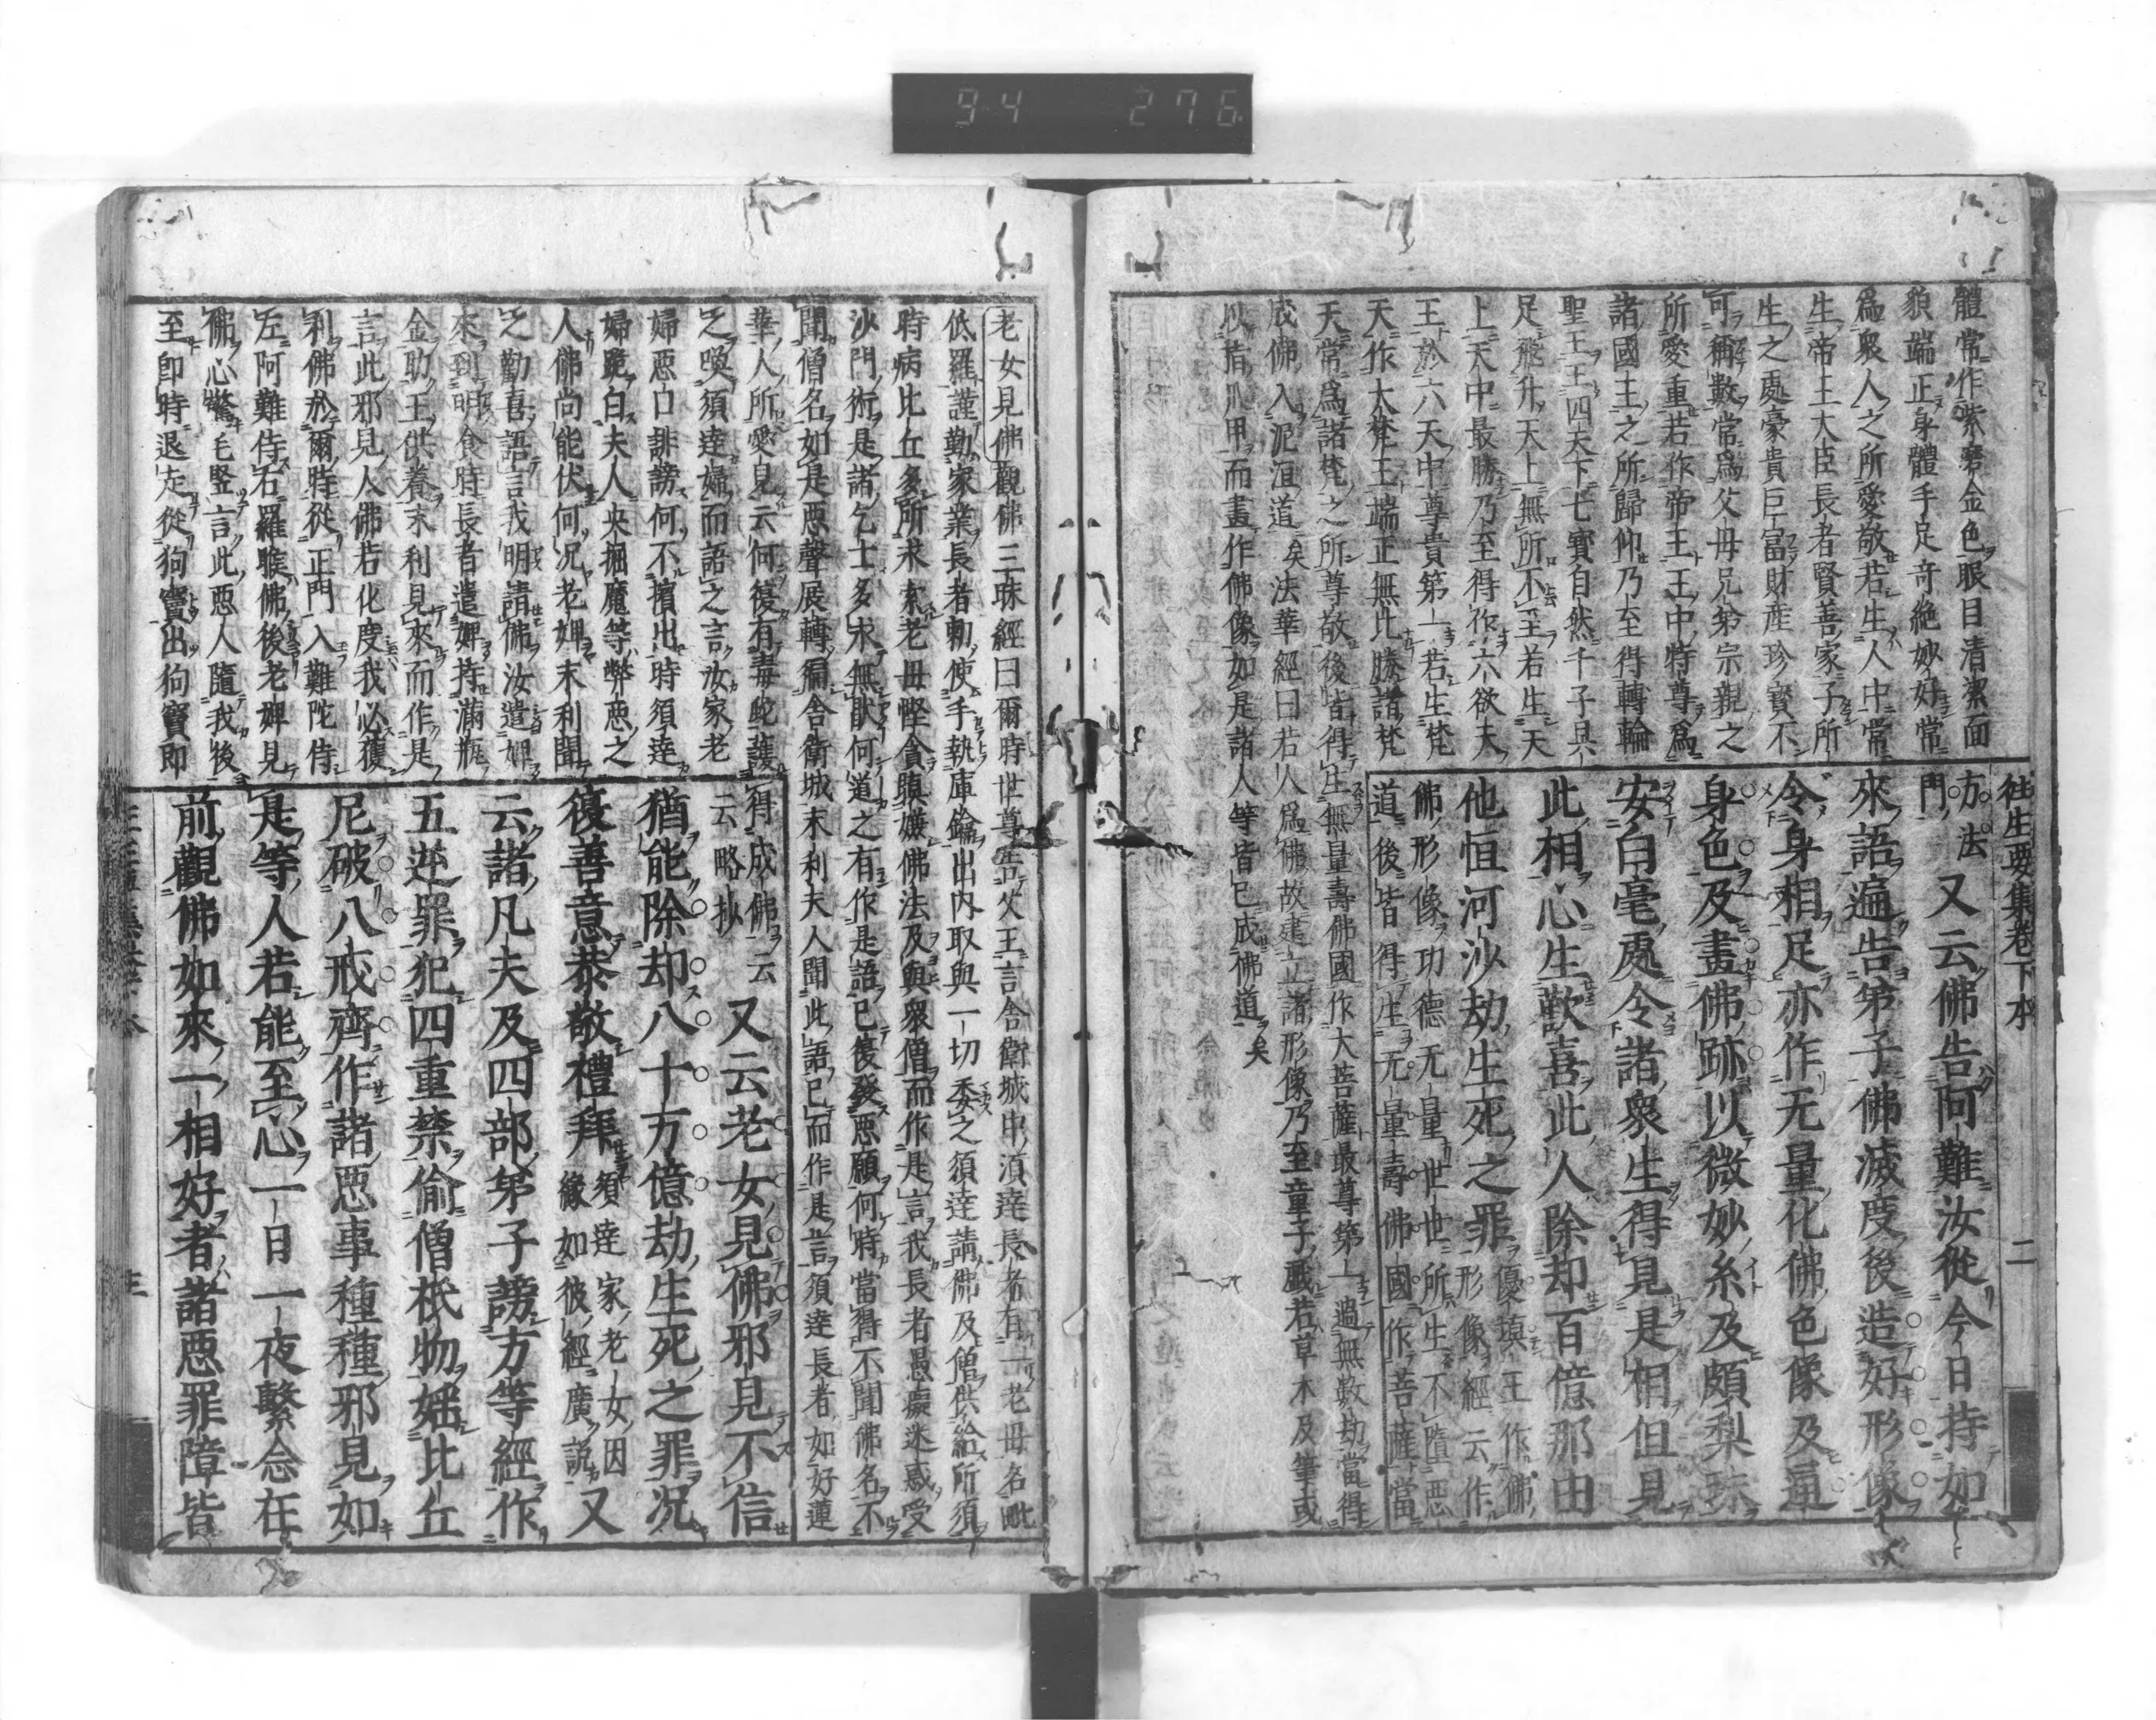 94 276
往生要集卷下本
二
體常作紫磨金色眼目清潔面
貌端正身體手足奇絶妙好常
爲衆人之所愛敬若生人中常
生帝王大臣長者賢善家子所
生之處豪貴巨富財産珍寶不
可稱數常爲父母兄弟宗親之
所愛重若作帝王王中特尊爲
諸國王之所歸仰乃至得轉輪
聖王王四天下七寶自然千子具
足飛升天上無所不至若生天
上天中最勝乃至得作六欲天
王於六天中尊貴第一若生梵
天作大梵王端正無比勝諸梵
天常爲諸梵之所尊敬後皆得生無量壽佛國作大菩薩最尊第一過無數劫當得
成佛入泥洹道矣法華經曰若人爲佛故建立諸形像乃至童子戲若草木及筆或
以指爪甲而畫作佛像如是諸人等皆已成佛道矣
方法
門
又云佛告阿難汝從今日持如
來語遍告弟子佛滅度後造好形像
令身相足亦作无量化佛色像及通
身色及畫佛跡以微妙糸及頗梨珠
安白毫處令諸衆生得見是相但見
此相心生歡喜此人除却百億那由
他恒河沙劫生死之罪優填王作佛
形像經云作
佛形像功德无量世世所生不墮惡
道後皆得生无量壽佛國作菩薩當
老女見佛觀佛三昧經曰爾時世尊告父王言舍衛城中須達長者有一老母名毗
低羅謹勤家業長者勅使手執庫鑰出内取與一切委之須達請佛及僧供給所須
時病比丘多所求索老母慳貪瞋嫌佛法及與衆僧而作是言我長者愚癡迷惑受
沙門術是諸乞士多求無猒何道之有作是語已復發惡願何時當得不聞佛名不
聞僧名如是惡聲展轉徧舍衛城末利夫人聞此語已而作是言須達長者如好蓮
華人所愛見云何復有毒蛇護
之喚須達婦而語之言汝家老
婦惡口誹謗何不擯出時須達
婦跪白夫人央掘魔等弊惡之
人佛尚能伏何況老婢末利聞
之勸喜語言我明請佛汝遣婢
來到明食時長者遣婢持滿瓶
金助王供養末利見來而作是
言此邪見人佛若化度我必獲
利佛於爾時從正門入難陀侍
左阿難侍右羅睺佛後老婢見
佛心驚毛竪言此惡人隨我後
至即時退走從狗竇出狗竇即
得成佛云
云略抄
又云老女見佛邪見不信
猶能除却八十万億劫生死之罪況
復善意恭敬禮拜須達家老女因
緣如彼經廣説又
云諸凡夫及四部弟子謗方等經作
五逆罪犯四重禁偷僧祇物婬比丘
尼破八戒齊作諸惡事種種邪見如
是等人若能至心一日一夜繫念在
前觀佛如來一相好者諸惡罪障皆